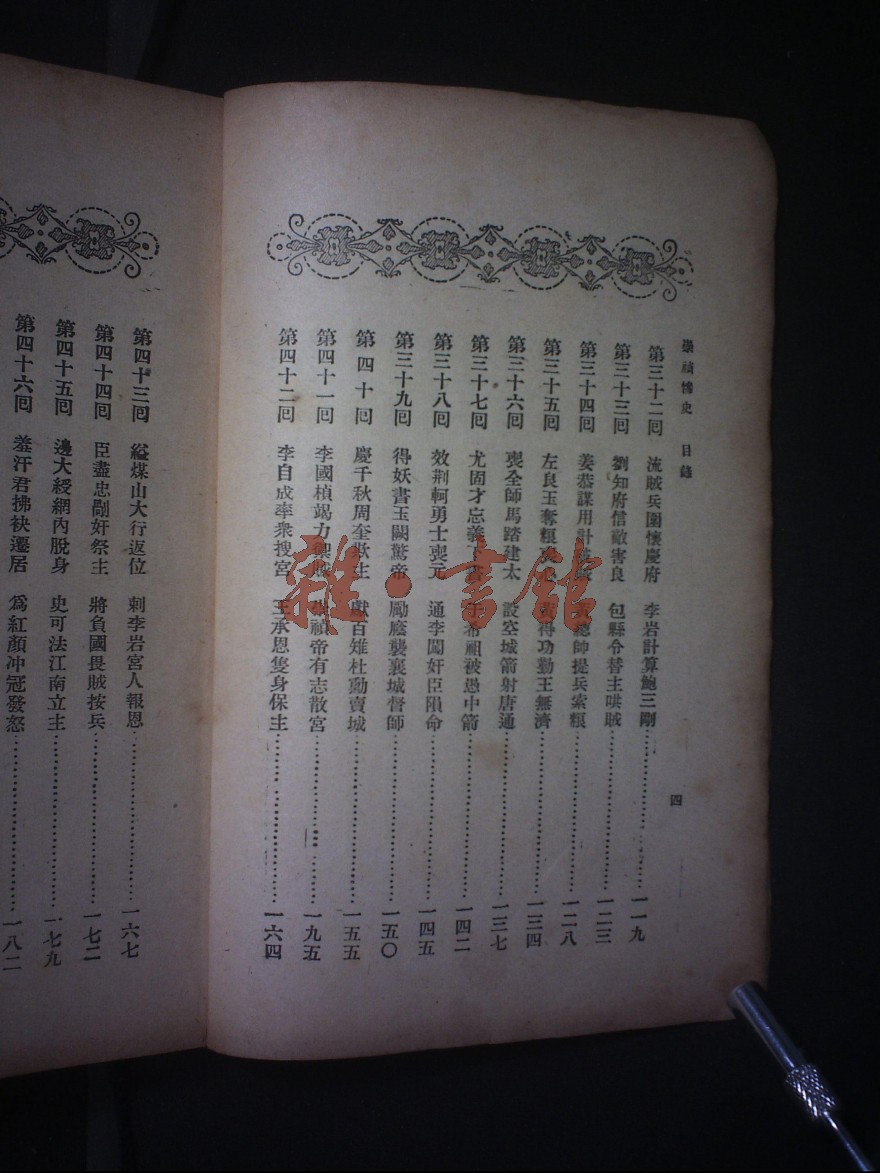 崇禎慘史 目錄
四
第三十二回 流賊兵圍懷慶府 李岩計算鮑三剛 一一九
第三十三回 劉知府信敵害良 包縣令替主哄賊 一二三
第三十四回 姜恭謀用計 帥提兵索糧 一二八
第三十五回 左良玉奪糧 得功勤王無濟 一三四
第三十六回 喪全師馬踏建太 設空城箭射唐通 一三七
第三十七回 尤固才忘義 希祖被愚中箭 一四二
第三十八回 效荆軻勇士喪元 通李闖奸臣隕命 一四五
第三十九回 得妖書玉闕驚帝 勵廕襲襄城督師 一五〇
第四十回 慶千秋周奎欺主 獻百雉杜勳賣城 一五五
第四十一回 李國楨竭力禦賊 崇禎帝有志散宮 一九五
第四十二回 李自成率衆搜宮 王承恩隻身保主 一六四
第四十三回 縊煤山大行返位 刺李岩宮人報恩 一六七
第四十四回 臣盡忠剮奸祭主 將負國畏賊按兵 一七二
第四十五回 邊大綬網內脫身 史可法江南立主 一七九
第四十六回 羞汗君拂袂遷居 爲紅顏冲冠發怒 一八二
雜·書館